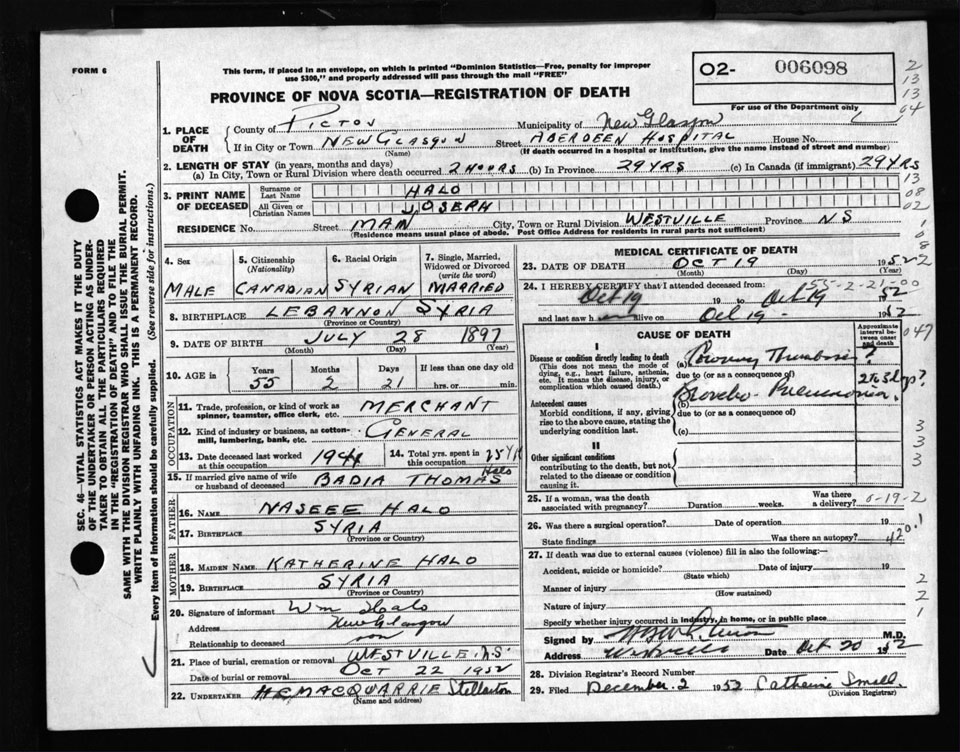 FORM 6
This form, if placed in an envelope, on which is printed "Dominion Statistics—Free, penalty for improper
use $300," and properly addressed will pass through the mail "FREE"
O2- 006098
For use of the Department only
PROVINCE OF NOVA SCOTIA—REGISTRATION OF DEATH
2
13
13
04
1. PLACE OF DEATH
County of PICTOU Municipality of New Glasgow
If in City or Town NEW GLASGOW Street ABERDEEN HOSPITAL House No.
(Name) (If death occurred in a hospital or institution, give the name instead of street and number)
2. LENGTH OF STAY (in years, months and days)
(a) In City, Town or Rural Division where death occurred 2 HOURS (b) In Province 29 YRS (c) In Canada (if immigrant) 29 YRS
13
08
02
3. PRINT NAME OF DECEASED
Surname or Last Name HALO
All Given or Christian Names JOSEPH
RESIDENCE No. Street MAIN City, Town or Rural Division WESTVILLE Province N S
(Residence means usual place of abode. Post Office Address for residents in rural parts not sufficient)
4. Sex
MALE
5. Citizenship (Nationality)
CANADIAN
6. Racial Origin
SYRIAN
7. Single, Married, Widowed or Divorced (write the word)
MARRIED
8. BIRTHPLACE LEBANNON SYRIA
(Province or Country)
9. DATE OF BIRTH JULY 28 1897
(Month) (Day) (Year)
10. AGE in Years Months Days If less than one day old
55 2 21 hrs. or min.
OCCUPATION
11. Trade, profession, or kind of work as spinner, teamster, office clerk, etc. MERCHANT
12. Kind of industry or business, as cotton-mill, lumbering, bank, etc. GENERAL
13. Date deceased last worked at this occupation
14. Total yrs. spent in this occupation 25 YR
15. If married give name of wife or husband of deceased BADIA THOMAS Halo
FATHER
16. Name HALO
17. Birthplace SYRIA
(Province or Country)
MOTHER
18. Maiden Name KATHERINE HALO
19. Birthplace SYRIA
(Province or Country)
20. Signature of informant Wm Halo
Address New Glasgow
Relationship to deceased son
21. Place of burial, cremation or removal WESTVILLE N.S.
Date of burial or removal OCT 22 1952
22. UNDERTAKER H.C. MACQUARRIE Stellarton
(Name and address)
MEDICAL CERTIFICATE OF DEATH
23. DATE OF DEATH OCT 19 1952
(Month) (Day) (Year)
24. I HEREBY CERTIFY that I attended deceased from:
55-2-21-00
Oct 19 19 to Oct 19 1952
and last saw h alive on Oct 19 - 1952
CAUSE OF DEATH
Approximate interval between onset and death
047
I
Disease or condition directly leading to death
(This does not mean the mode of dying, e.g., heart failure, asthenia, etc. It means the disease, injury, or complication which caused death.)
(a) Coronary Thrombosis ?
due to (or as consequence of)
Antecedent causes
Morbid conditions, if any, giving rise to the above cause, stating the underlying condition last.
(b) Broncho Pneumonia 2 to 3 dys?
due to (or as a consequence of)
(c)
II
Other significant conditions
contributing to the death, but not related to the disease or condition causing it.
3
3
3
25. If a woman, was the death associated with pregnancy? Duration weeks. Was there a delivery?
6-19-2
26. Was there a surgical operation? Date of operation 19
State findings Was there an autopsy?
420.1
27. If death was due to external causes (violence) fill in also the following:—
Accident, suicide or homicide? Date of injury 19
(State which)
Manner of injury
(How sustained)
Nature of injury
Specify whether injury occurred in industry, in home, or in public place
2
2
1
Signed by M.D.
Address Westville Date Oct 20 1952
28. Division Registrar's Record Number
29. Filed December 2 1952 Catherine Small
(Division Registrar)
SEC. 46—VITAL STATISTICS ACT MAKES IT THE DUTY
OF THE UNDERTAKER OR PERSON ACTING AS UNDER-
TAKER TO OBTAIN ALL THE PARTICULARS REQUIRED
IN THE "REGISTRATION OF DEATH" AND TO FILE THE
SAME WITH THE DIVISION REGISTRAR WHO SHALL ISSUE THE BURIAL PERMIT.
WRITE PLAINLY WITH UNFADING INK. THIS IS A PERMANENT RECORD.
Every item of information should be carefully supplied. (See reverse side for instructions.)